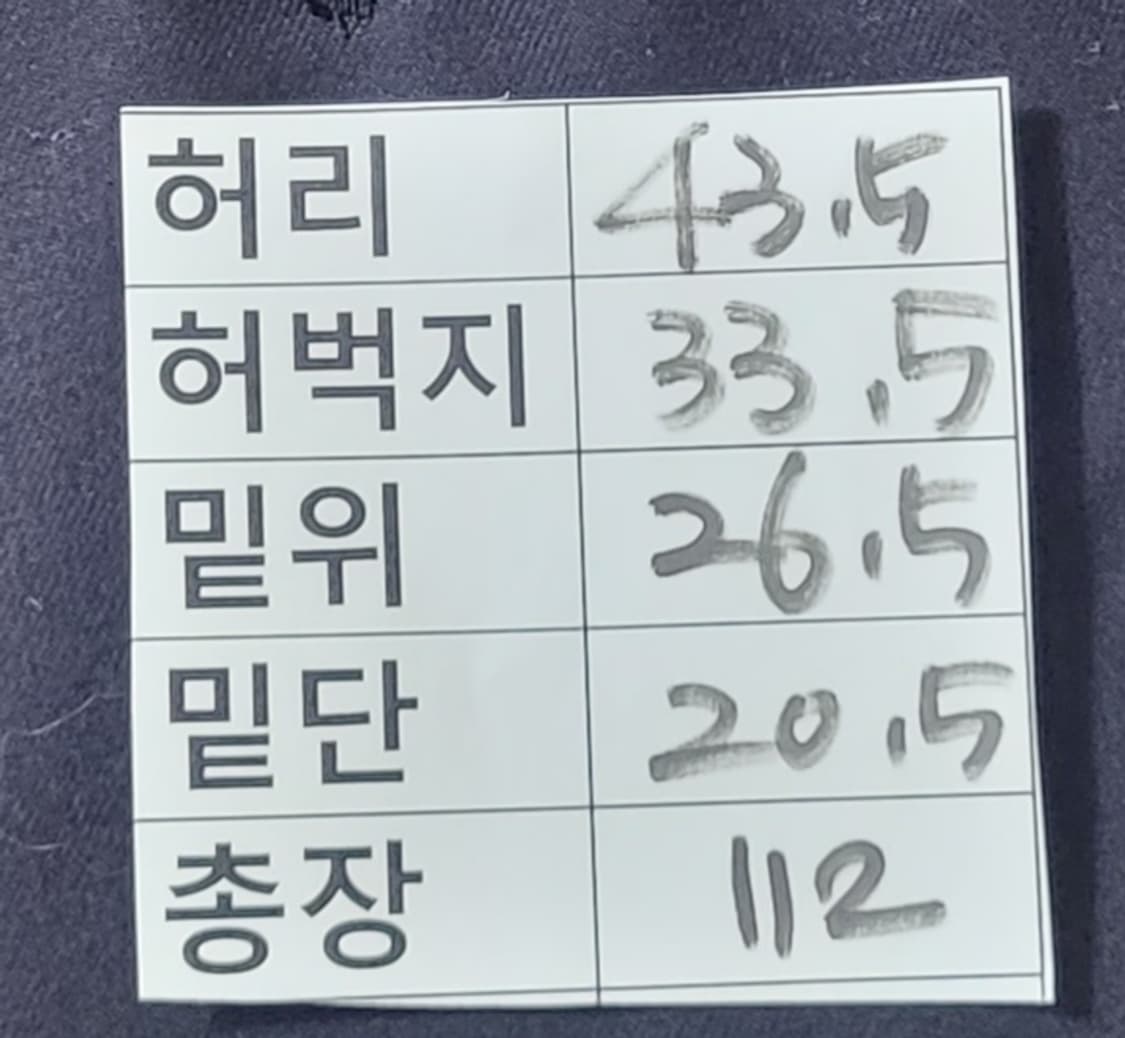 허리 43.5
허벅지 33.5
밑위 26.5
밑단 20.5
총장 112